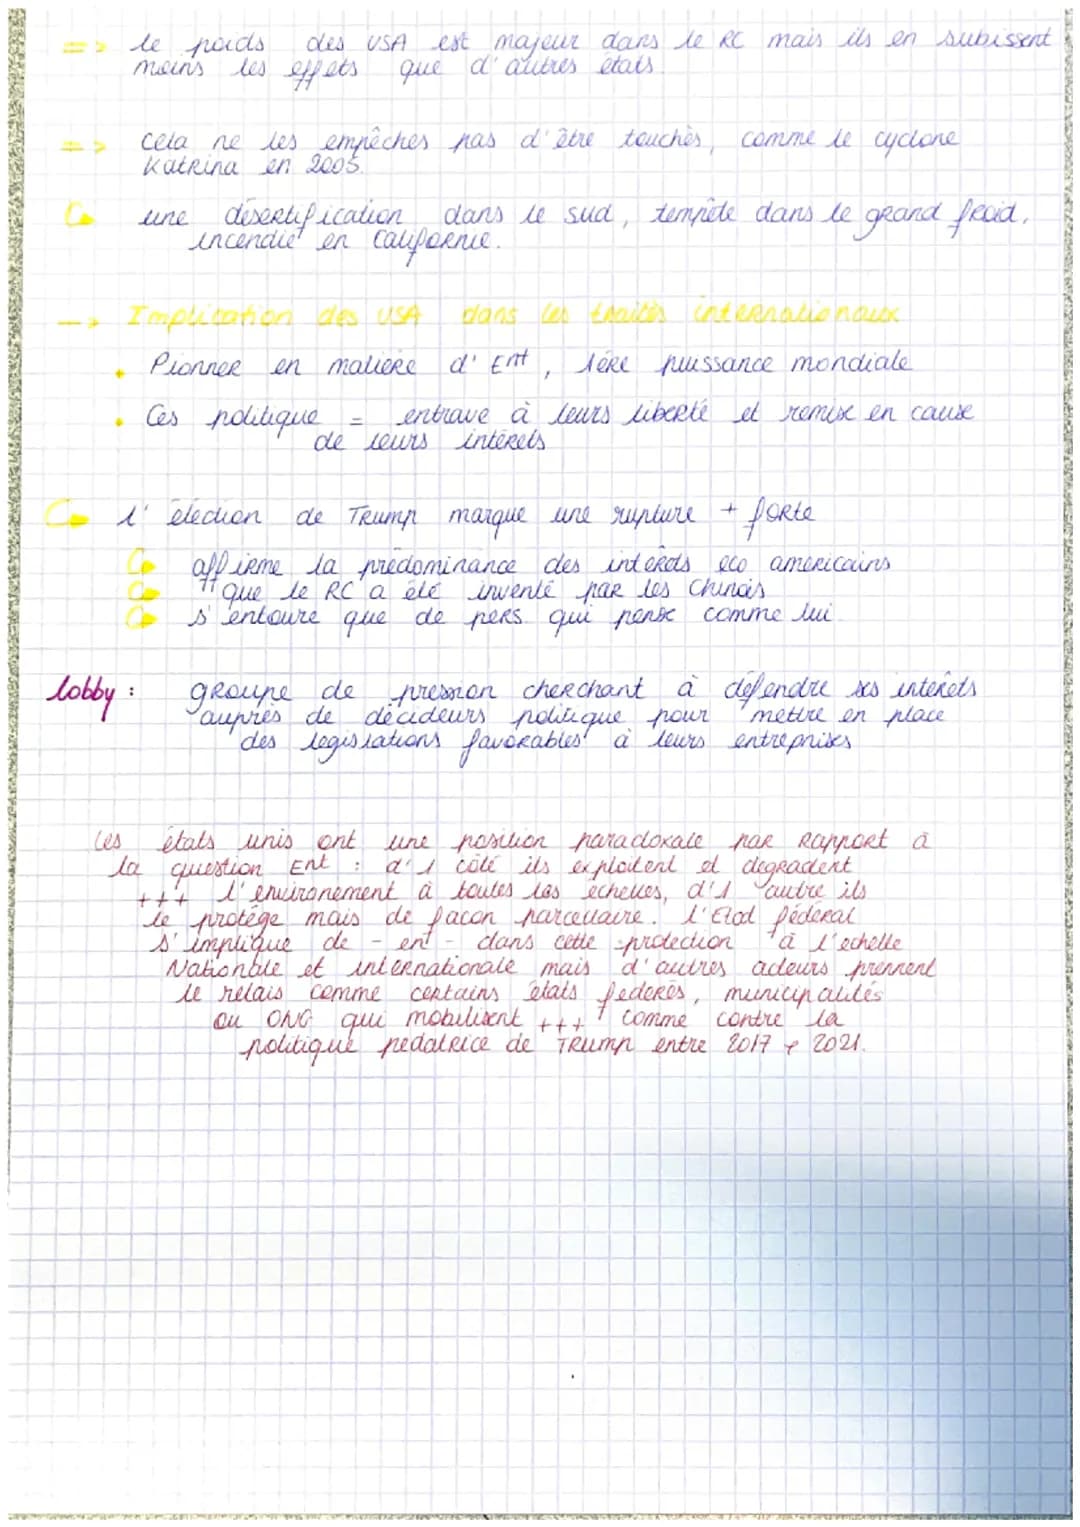 => le poids des USA est majeur dans le RC mais ils en subissent
moins les effets que d'autres états.
=> Cela ne les empêches pas d'être touchés, comme le cyclone
Katrina en 2005.
une désertification dans le sud, tempête dans le grand froid,
incendie en Californie.
--> Implication des USA dans les traités internationaux
• Pionner en matière d'Ent, 1ère puissance mondiale
• Ces politique = entrave à leurs liberté et remise en cause
de leurs intérets
l'élection de Trump marque une rupture + forte
affirme la prédominance des intérêts eco américains
" que le RC a été inventé par les Chinois
s'entoure que de pers qui pense comme lui
lobby : groupe de pression cherchant à défendre ses intérêts
auprès de décideurs politique pour mettre en place
des législations favorables à leurs entreprises
Les états unis ont une position paradoxale par rapport à
la question Ent : d'1 côté ils exploitent et dégradent
+++ l'environement à toutes les échelles, d'1 autre ils
le protège mais de facon parcellaire. l'Etat fédéral
s'implique de - en - dans cette protection à l'echelle
Nationale et internationale mais d'autres acteurs prennent
le relais comme certains états federés, municipalités
ou ONG qui mobilisent +++ comme contre la
politique pédatrice de Trump entre 2017 et 2021.